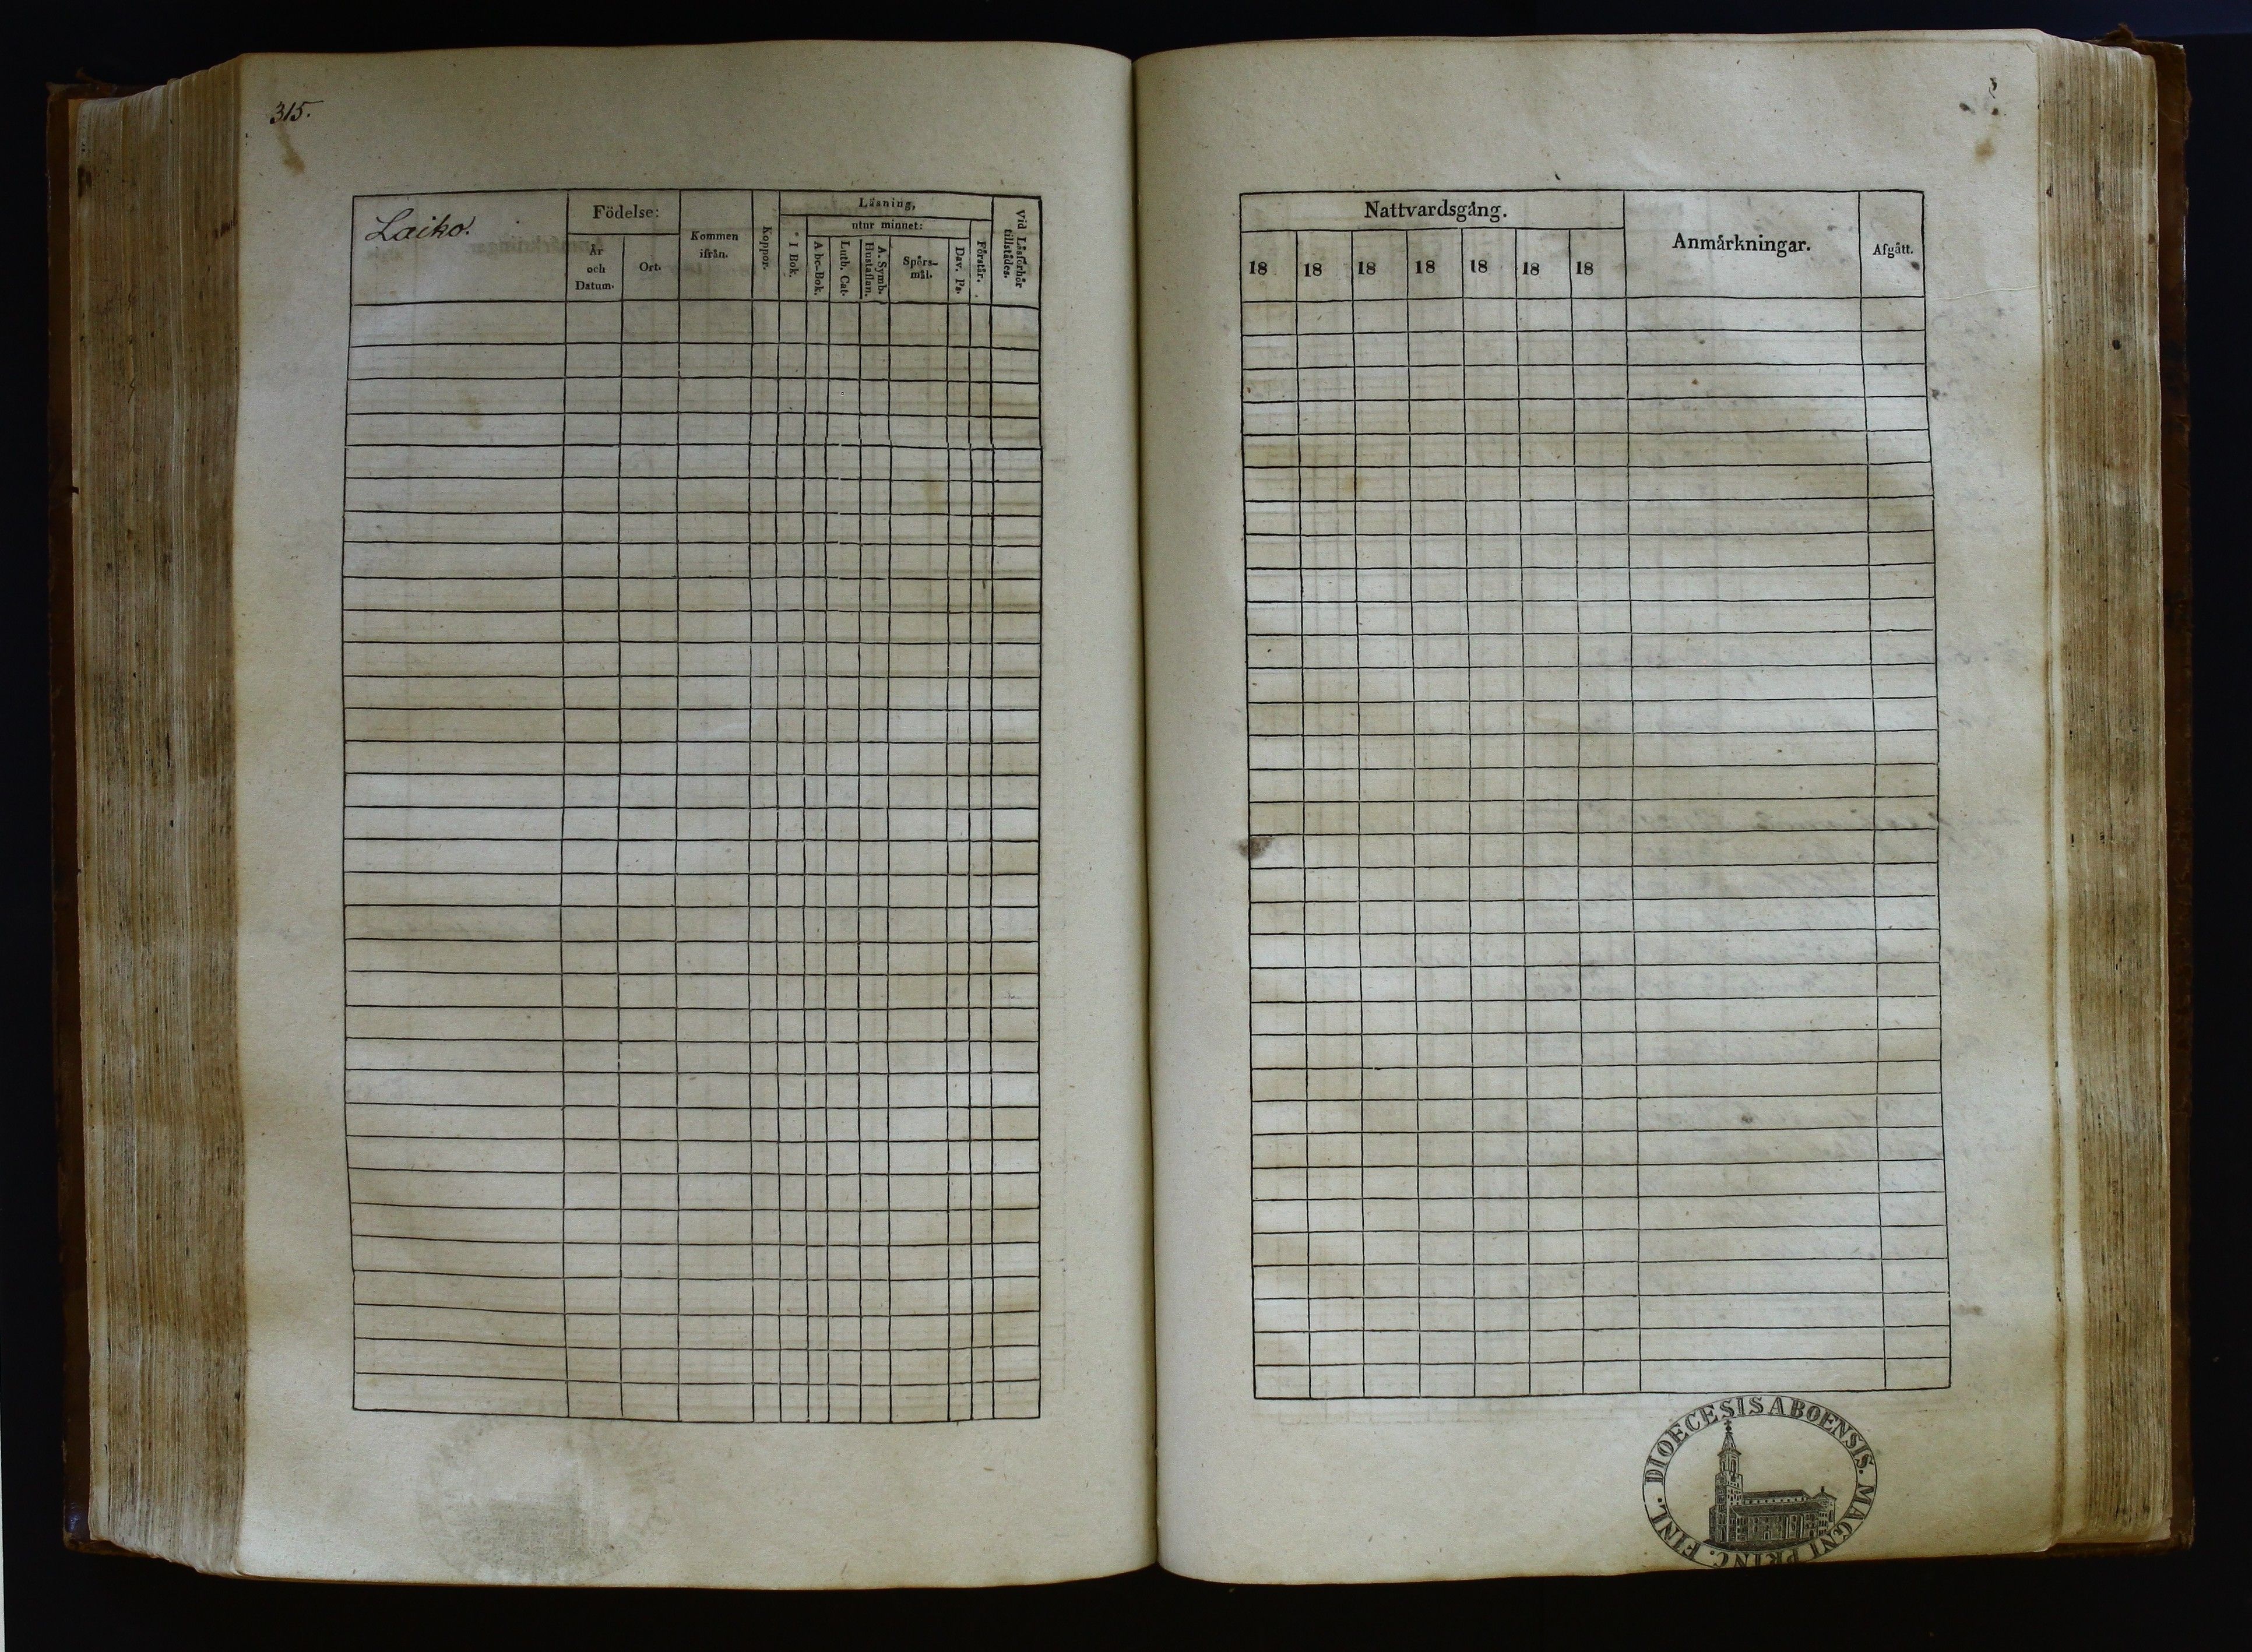 315.
Laiko.
Födelse:
År
och
Datum.
Ort.
Kommen
ifrån.
Koppor.
Läsning,
I Bok.
utur minnet:
Abc-Bok.
Luth. Cat.
A. Symb.
Hustaflan.
Spörs-
mål.
Dav. Ps.
Förstår.
Vid Läsförhör
tillstädes.
Nattvardsgång.
18 18 18 18 18 18 18
Anmärkningar.
Afgått.
DIOECESIS ABOENSIS. MAGNI PRINC. FINL.